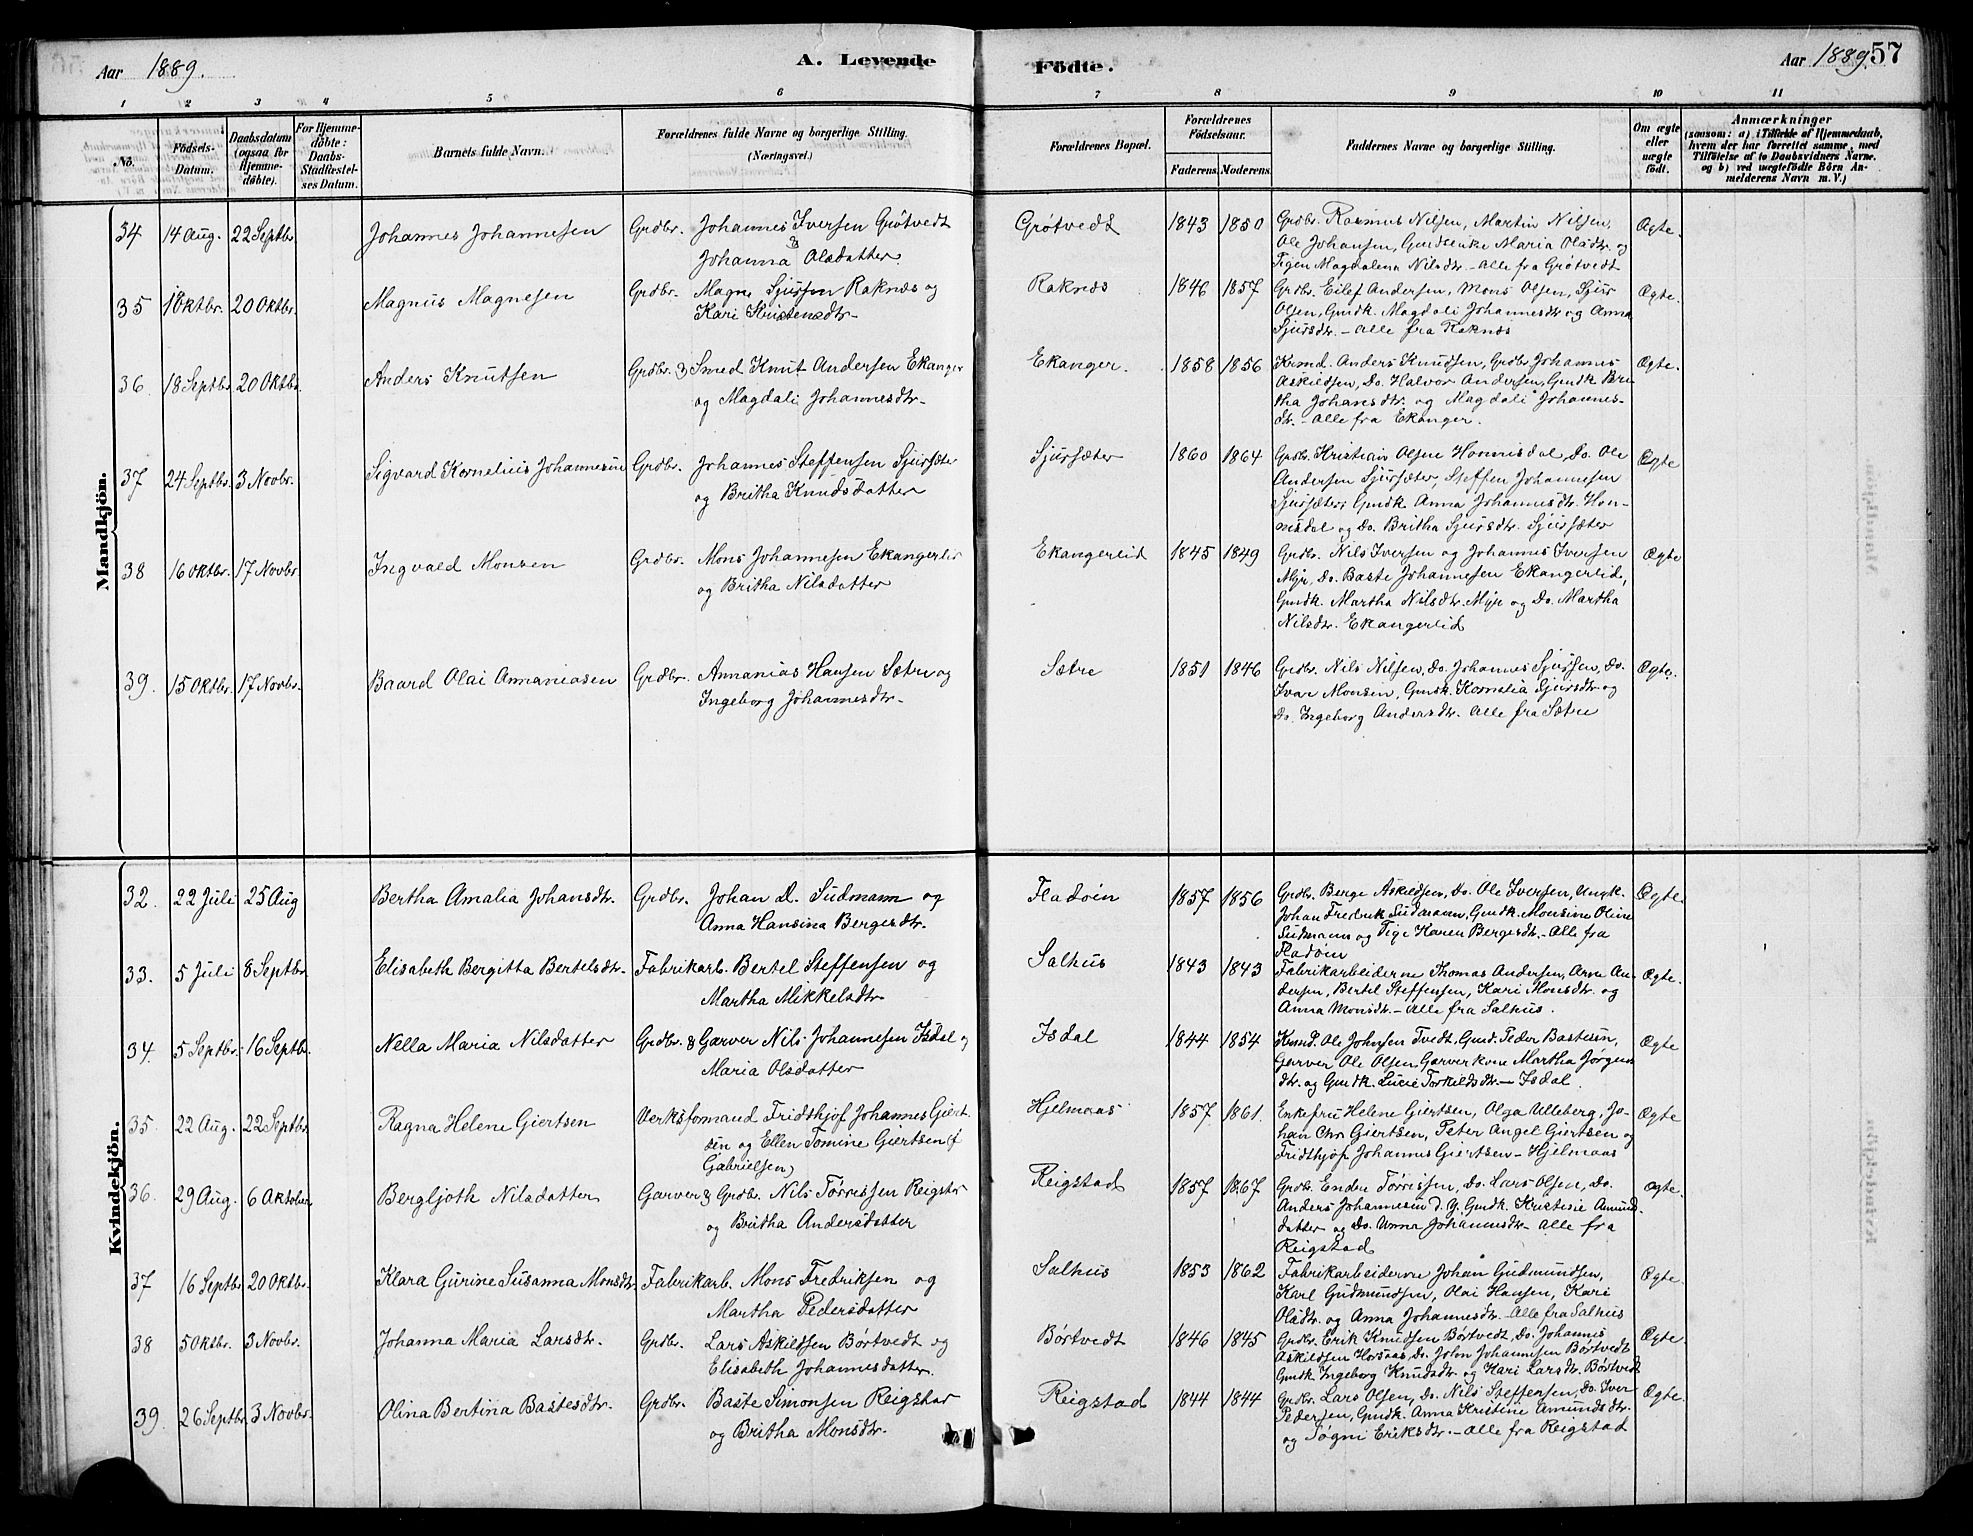 Aar 1889. A. Levende Födte. Aar 1889 57
1 2 3 4 5 6 7 8 9 10 11
No. Födsels-Datum. Daabsdatum (ogsaa for Hjemmedöbte). For Hjemmedöbte: Daabs-Stadfæstelses Datum. Barnets fulde Navn. Forældrenes fulde Navne og borgerlige Stilling. (Næringsvei.) Forældrenes Bopæl. Forældrenes Födselsaar. Faderens Moderens Faddernes Navne og borgerlige Stilling. Om ægte eller uægte födt. Anmærkninger
(saasom: a) i Tilfælde af Hjemmedaab, hvem der har forrettet samme, med Tilföielse af to Daabsvidners Navne, og b) ved uægtefödte Börn Anmelderens Navn m. V.)
Mandkjön.
34 14 Aug. 22 Septbr. Johannes Johannesen Grdbr. Johannes Iversen Grötvedt
Johanna Olsdatter.
Grötvedt 1843 1850 Grdbr. Rasmus Nilsen, Martin Nilsen,
Ole Johansen, Gaardsenke Maria Olsdtr. og
Pigen Magdalena Nilsdtr. - Alle fra Grötvedt
Ægte.
35 Oktbr. 20 Oktbr. Magnus Magnesen Grdbr. Magne Sjursen Raknæs og
Kari Kristensdtr.
Raknæs 1846 1857 Grdbr. Eilef Andersen, Mons Olsen, Sjur
Olsen, Gmdk. Magdali Johannesdtr og Anna
Sjursdtr. - Alle fra Raknæs
Ægte.
36 18 Septbr. 20 Oktbr. Anders Knutsen Grdbr. & Smed Knut Andersen Ekanger
og Magdali Johannesdtr.
Ekanger. 1858 1856 Krmd. Anders Knudsen, Grdbr. Johannes
Askildsen, Do. Halvor Andersen, Gmdk Bri
tha Johansdtr. og Magdali Johannes-
dtr. - Alle fra Ekanger.
Ægte.
37 24 Septbr. 3 Novbr. Sigvard Kornelius Johannesen Grdbr. Johannes Steffensen Sjursæter
og Britha Knudsdatter
Sjursæter 1860 1864 Grdbr. Kristian Olsen Honnisdal, Do. Ole
Andersen Sjursæter, Steffen Johannesen
Sjursæter, Gmdk. Anna Johannesdtr. Hon-
nisdal og Do. Britha Sjursdtr. Sjursæter
Ægte
38 16 Oktbr. 17 Novbr. Ingvald Monsen Grdbr. Mons Johannesen Ekangerlid
og Britha Nilsdatter
Ekangerlid 1845 1849 Grdbr. Nils Iversen og Johannes Iversen
Myr, Do. Baste Johannesen Ekangerlid,
Gmdk. Martha Nilsdtr. Myr og Do. Martha
Nilsdtr. Ekangerlid
Ægte
39. 15 Oktbr. 17 Novbr. Baard Olai Annaniasen Grdbr. Annanias Hansen Sætre og
Ingeborg Johannesdtr.
Sætre 1851 1846 Grdbr. Nils Nilsen, Do. Johannes Sjursen, Do.
Ivar Monsen, Gmdk. Kornelia Sjursdtr og
Do. Ingeborg Andersdtr. Alle fra Sætre
Ægte.
Kvindekjön.
32. 22 Juli 25 Aug Bertha Amalia Johansdtr. Grdbr. Johan D. Sudmann og
Anna Hansina Bergesdtr.
Fladöin 1857 1856 Grdbr. Berge Askildsen, Do. Ole Iversen, Ungk.
Johan Fredrik Sudmann, Gmdk. Monsine Oline
Sudmann og Pige Karen Bergesdtr. - Alle fra
Fladöin
Ægte.
33. 5 Juli 8 Septbr. Elisabeth Bergitta Bertelsdtr. Fabrikarb. Bertel Steffensen og
Martha Mikkelsdtr
Salhus 1843 1843 Fabrikarbeiderne Thomas Andersen, Arne An-
dersen, Bertel Steffensen, Kari Monsdtr. og
Anna Monsdtr. - Alle fra Salhus.
Ægte.
34. 5 Septbr. 16 Septbr. Nella Maria Nilsdatter Grdbr. & Garver Nils Johannesen Isdal og
Maria Olsdatter
Isdal 1844 1854 Krmd. Ole Johnsen Tvedt, Gmd. Peder Bastesen,
Garver Ole Olsen, Garverkone Martha Jörgens
dtr. og Gmdk. Lucie Torkildsdtr. - Isdal.
Ægte
35. 22 Aug. 22 Septbr. Ragna Helene Giertsen Verksformand Fridthjof Johannes Giert-
sen og Ellen Tomine Giertsen (f
Gabrielsen)
Hjelmaas 1857 1861. Enkefru Helene Giertsen, Olga Ulleberg, Jo-
han Chr. Giertsen, Peter Angel Giertsen og
Fridthjof Johannes Giertsen - Hjelmaas
Ægte
36. 29 Aug. 6 Oktober Bergljoth Nilsdatter Garver & Grdbr. Nils Törrissen Reigstad
og Britha Andersdatter
Reigstad 1857 1867 Grdbr. Endre Törrissen, Do. Lars Olsen, Do.
Anders Johannesen d. Y. Gmdk. Kristine Amund-
datter og Do. Anna Johannesdtr - Alle fra
Reigstad
Ægte.
37 16 Septbr. 20 Oktbr. Klara Gurine Susanna Monsdtr. Fabrikarb. Mons Fredriksen og
Martha Pedersdatter
Salhus 1853 1862 Fabrikarbeiderne Johan Gudmundsen,
Karl Gudmundsen, Olai Hansen, Kari
Olsdtr. og Anna Johannesdtr. - Alle fra Salhus
Ægte.
38 5 Oktbr. 3 Novbr. Johanna Maria Larsdtr. Grdbr. Lars Askildsen Börtvedt og
Elisabeth Johannesdatter.
Börtvedt 1846 1845 Grdbr. Erik Knudsen Börtvedt, Do. Johannes
Askildsen Horsaas, Do. John Johannesen Börtvedt
Gmdk Ingeborg Knudsdtr. og Kari Larsdtr. Börtvedt
Ægte.
39. 26 Septbr. 3 Novbr. Olina Bertina Bastesdtr. Grdbr. Baste Simonsen Reigstad
og Britha Monsdtr.
Reigstad 1844 1844 Grdbr. Lars Olsen, Do. Nils Steffensen, Do. Iver
Pedersen, Gmdk. Anna Kristine Amundsdtr.
og Sögni Eriksdtr. - Alle fra Reigstad
Ægte.